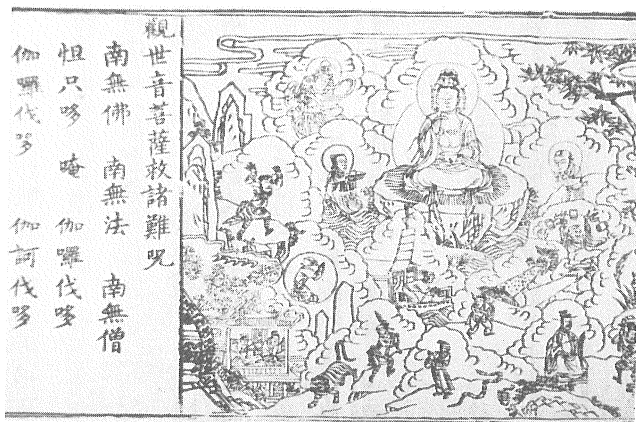 觀世音菩薩救諸難呪
南無佛 南無法 南無僧
怛只哆 唵 伽囉伐哆
伽囉伐哆 伽訶伐哆